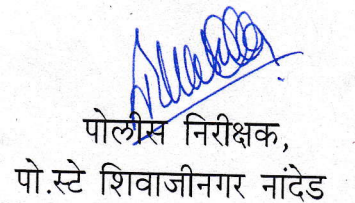 पोलीस निरीक्षक,
पो.स्टे शिवाजीनगर नांदेड